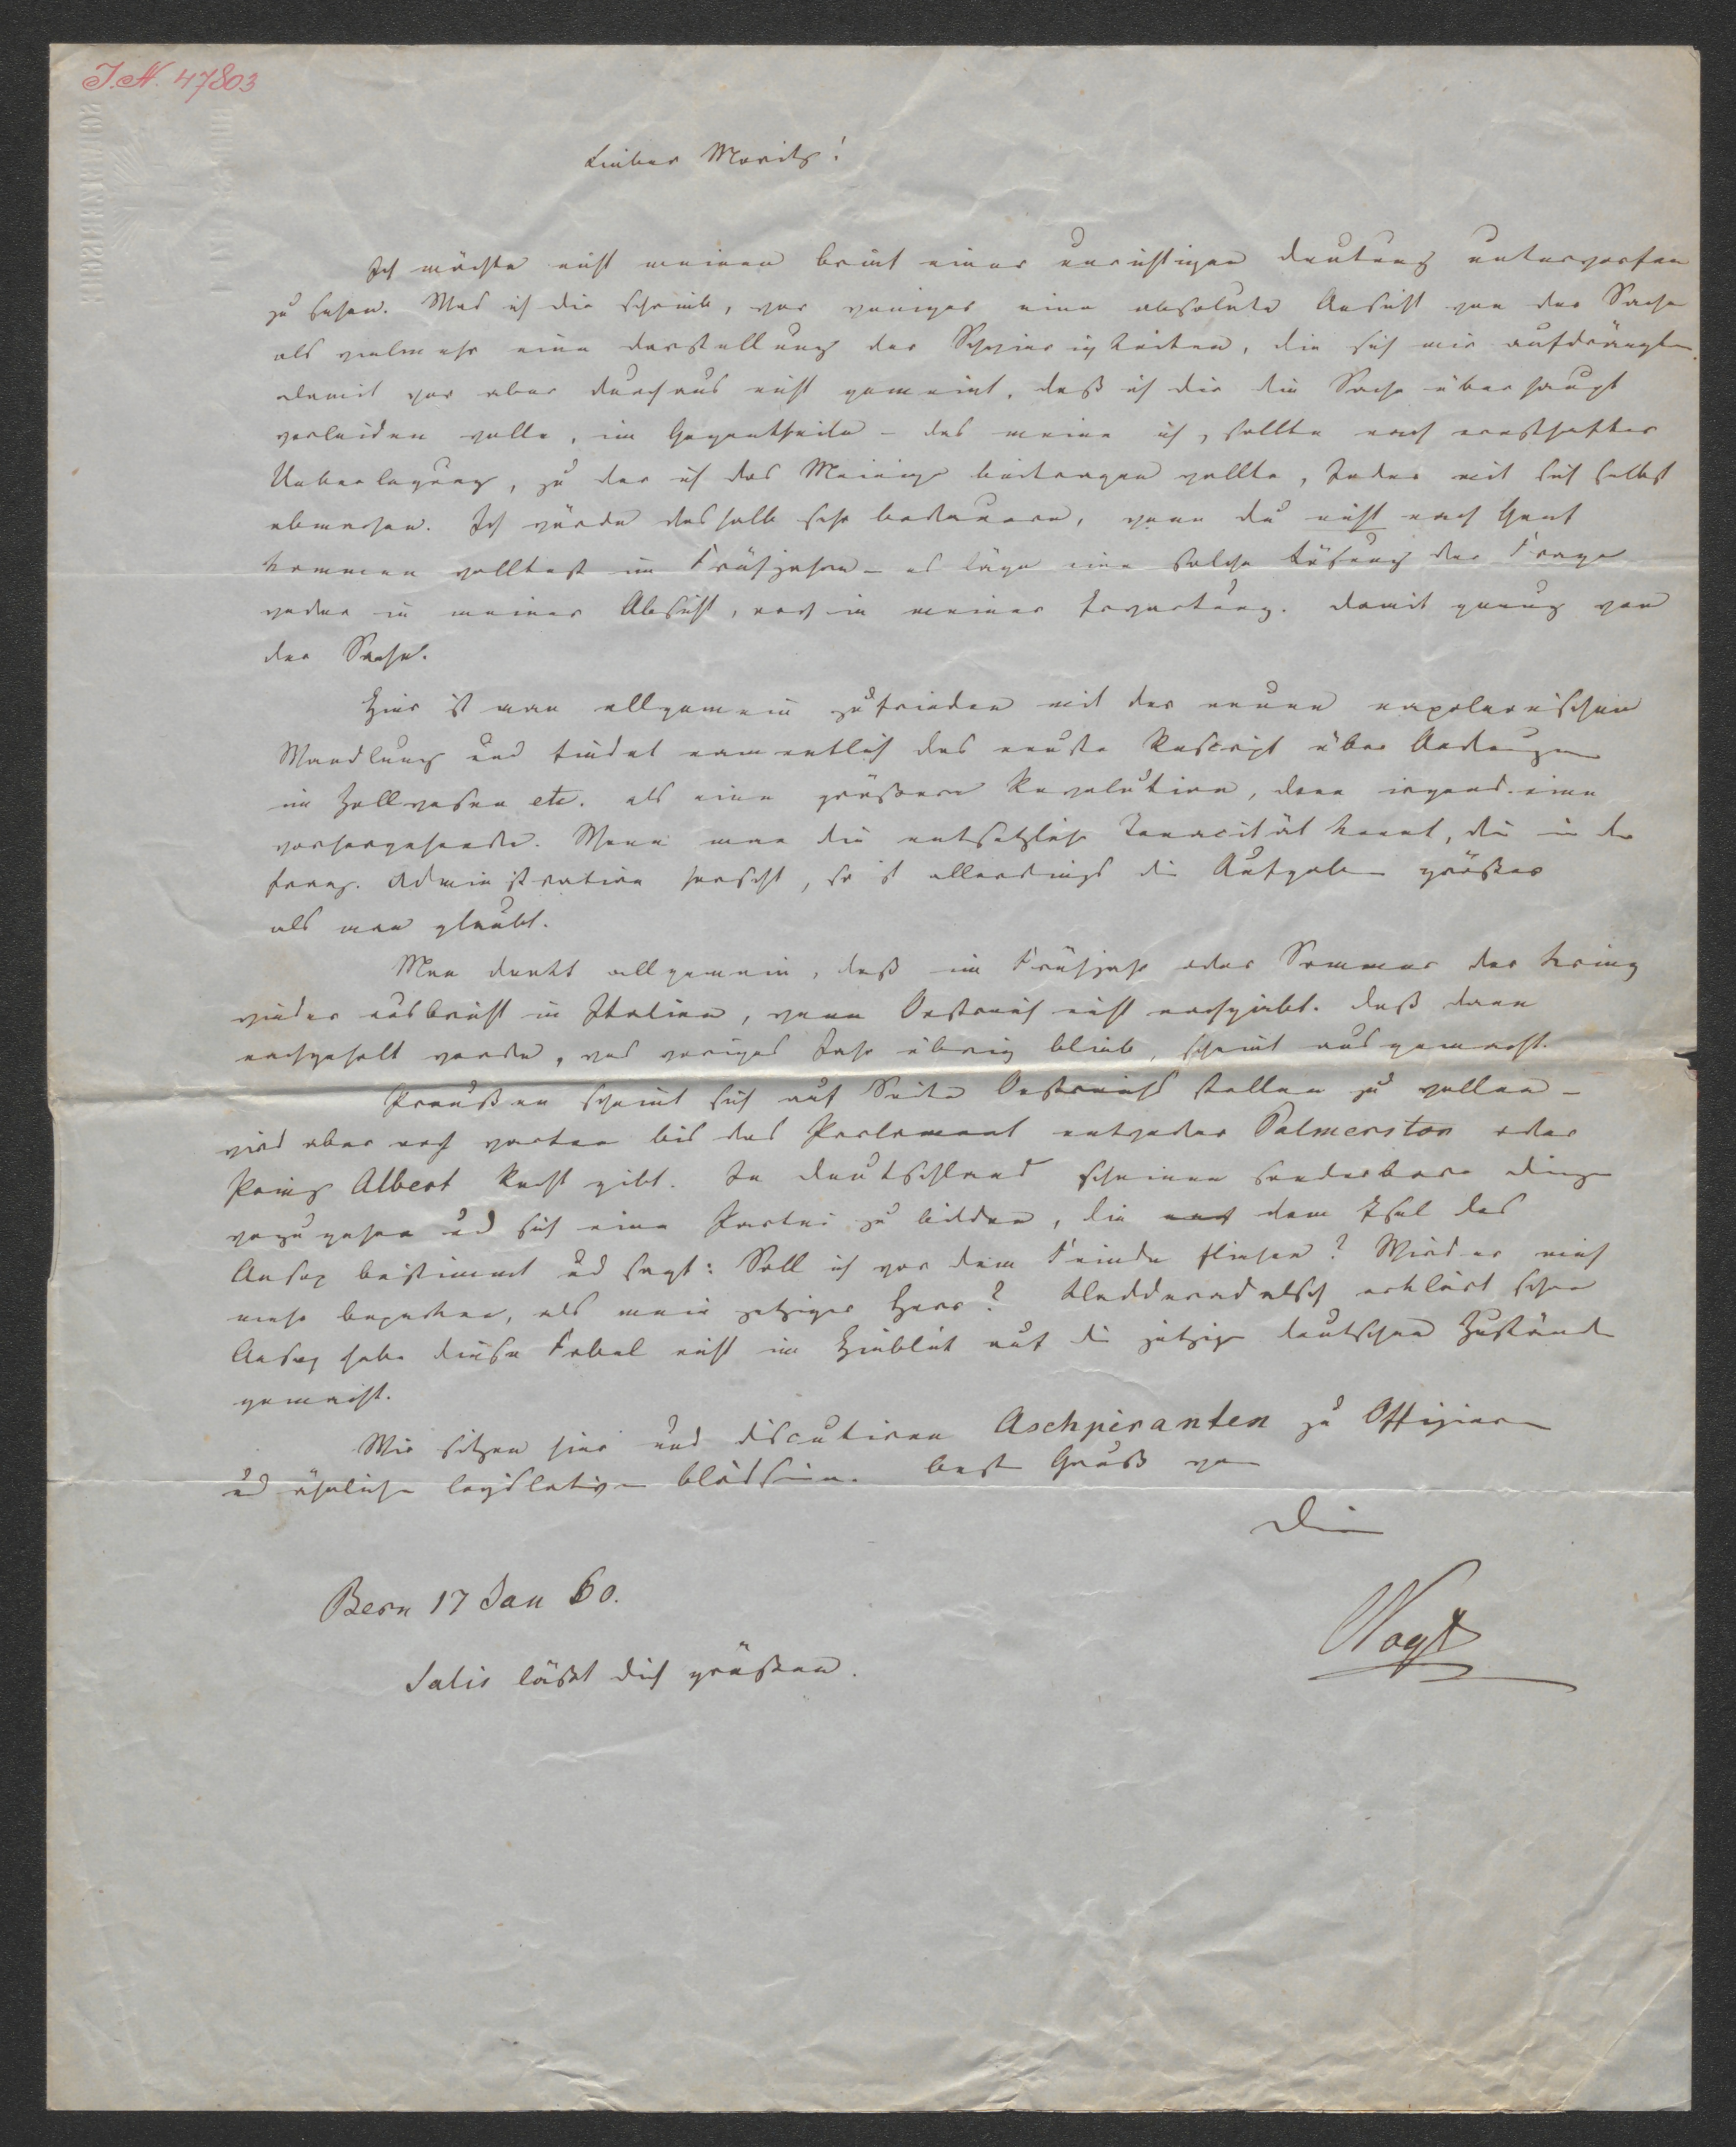 I.N. 47803
Lieber Moritz!
Ich möchte nicht meinen Brief einer unrichtigen Deutung unterworfen
zu sehen. Was ich dir schrieb, war weniger eine absolute Ansicht von der Sache
als vielmehr eine Darstellung der Schwierigkeiten, die sich mir aufdrängten.
Damit war aber durchaus nicht gemeint, daß ich dir die Sache überhaupt
verleiden wolle, im Gegentheile – das meine ich, sollte nach ernsthafter
Ueberlegung, zu der ich das Meinige beitragen wollte, Jeder mit sich selbst
abmachen. Ich würde deshalb sehr bedauern, wenn du nicht nach Genf
kommen wolltest im Frühjahre – es läge eine solche Lösung der Frage
weder in meiner Absicht, noch in meiner Erwartung. Damit genug von
der Sache.
Hier ist man allgemein zufrieden mit der neuen napoleonischen
Wandlung und findet namentlich das neuste Rescript über Aenderungen
im Zollwesen etc. als eine größere Revolution, denn irgend eine
vorhergehende. Wenn man die entsetzliche Tenacität kennt, die in der
franz. Administration herrscht, so ist allerdings die Aufgabe größer
als man glaubt.
Man denkt allgemein, daß im Frühjahr oder Sommer der Krieg
wieder ausbricht in Italien, wenn Oestreich nicht nachgiebt. Daß dann
nachgeholt werde, was voriges Jahr übrig blieb, scheint ausgemacht.
Preußen scheint sich auf Seite Oestreichs stellen zu wollen –
wird aber noch warten bis das Parlament entweder Palmerston oder
Prinz Albert Recht gibt. In Deutschland scheinen sonderbare Dinge
vorzugehen und sich eine Partei zu bilden, die dem Esel des
Aesop beistimmt und sagt: Soll ich vor dem Feinde fliehen? Wird er mich
mehr bepacken, als mein jetziger Herr? Kladderadatsch erklärt schon
Aesop habe diese Fabel nicht im Hinblick auf die jetzigen deutschen Zustände
gemacht.
Wir sitzen hier und discutiren Aschpiranten zu Offizieren
und ähnlichen legislativen Blödsinn. Beste Grüße von
Dein
Vogt
Bern 17 Jan 60.
Salis läßt dich grüßen.